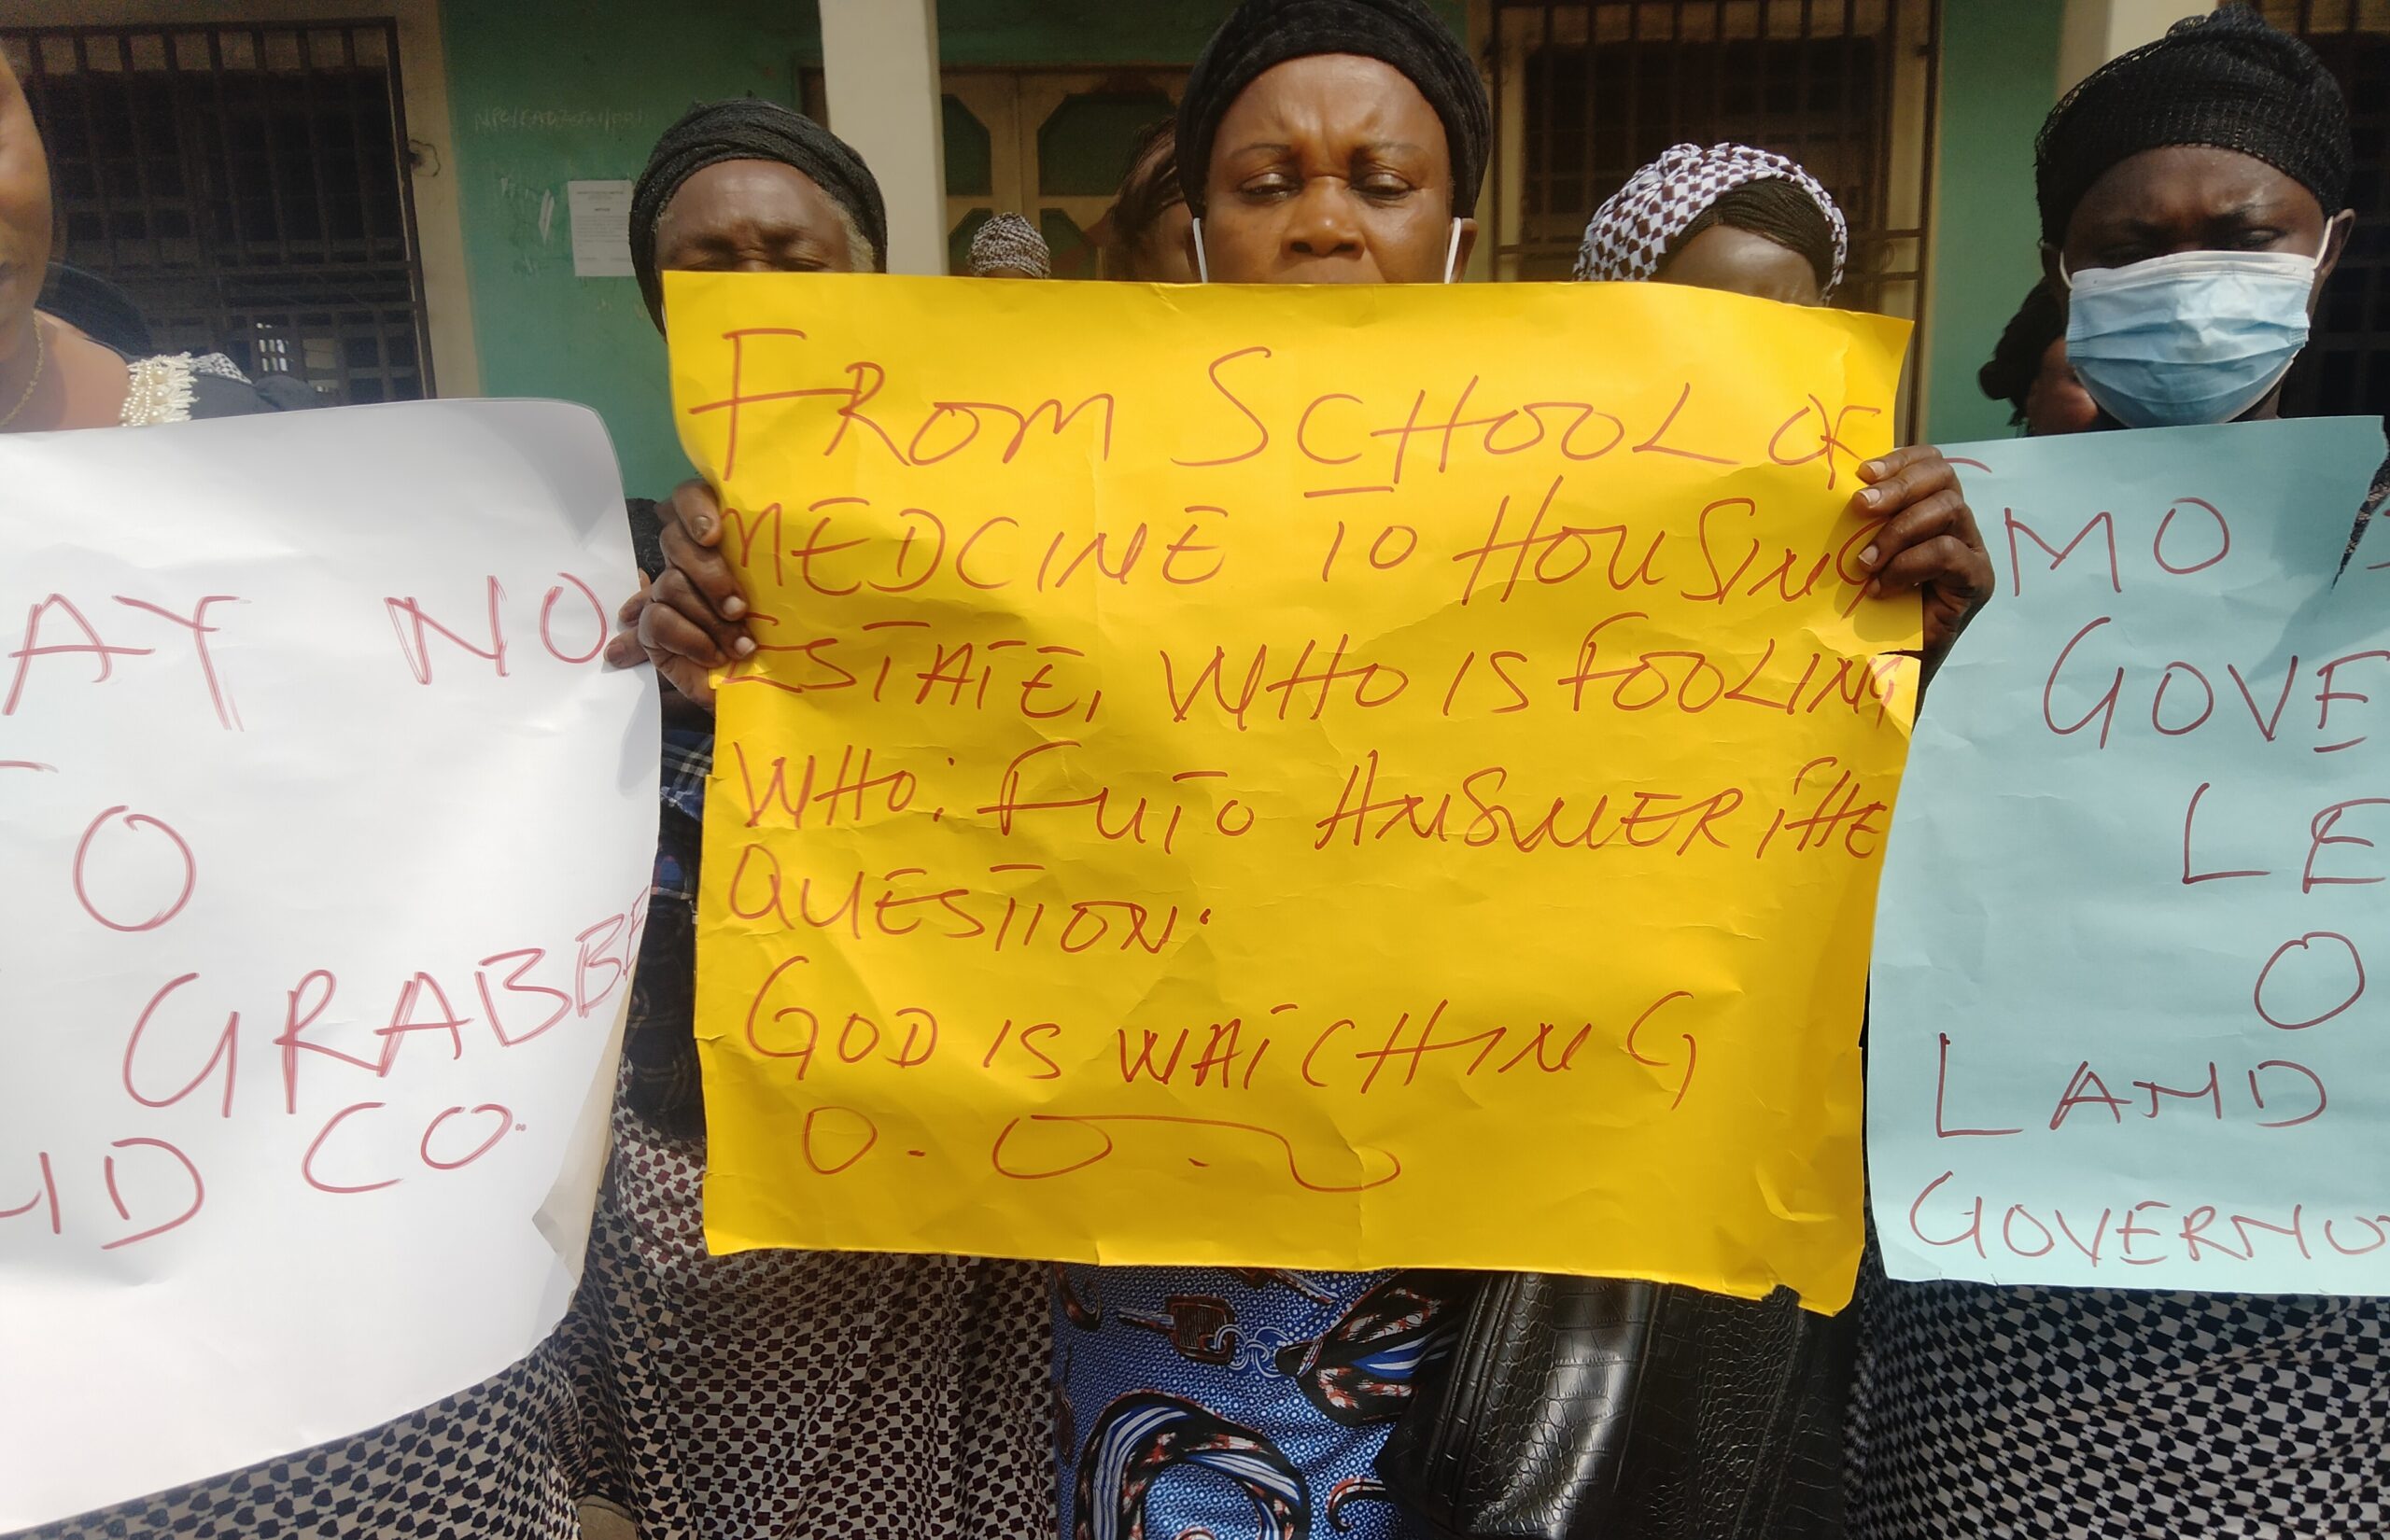 AY NO
TO
GRABBE
ND CO.
FROM SCHOOL OF
MEDCINE TO HOUSING
ESTATE, WHO IS FOOLING
WHO: FUTO ANSWER THE
QUESTION.
GOD IS WATCHING
O.O.
IMO
GOVE
LE
O
LAND
GOVERNO